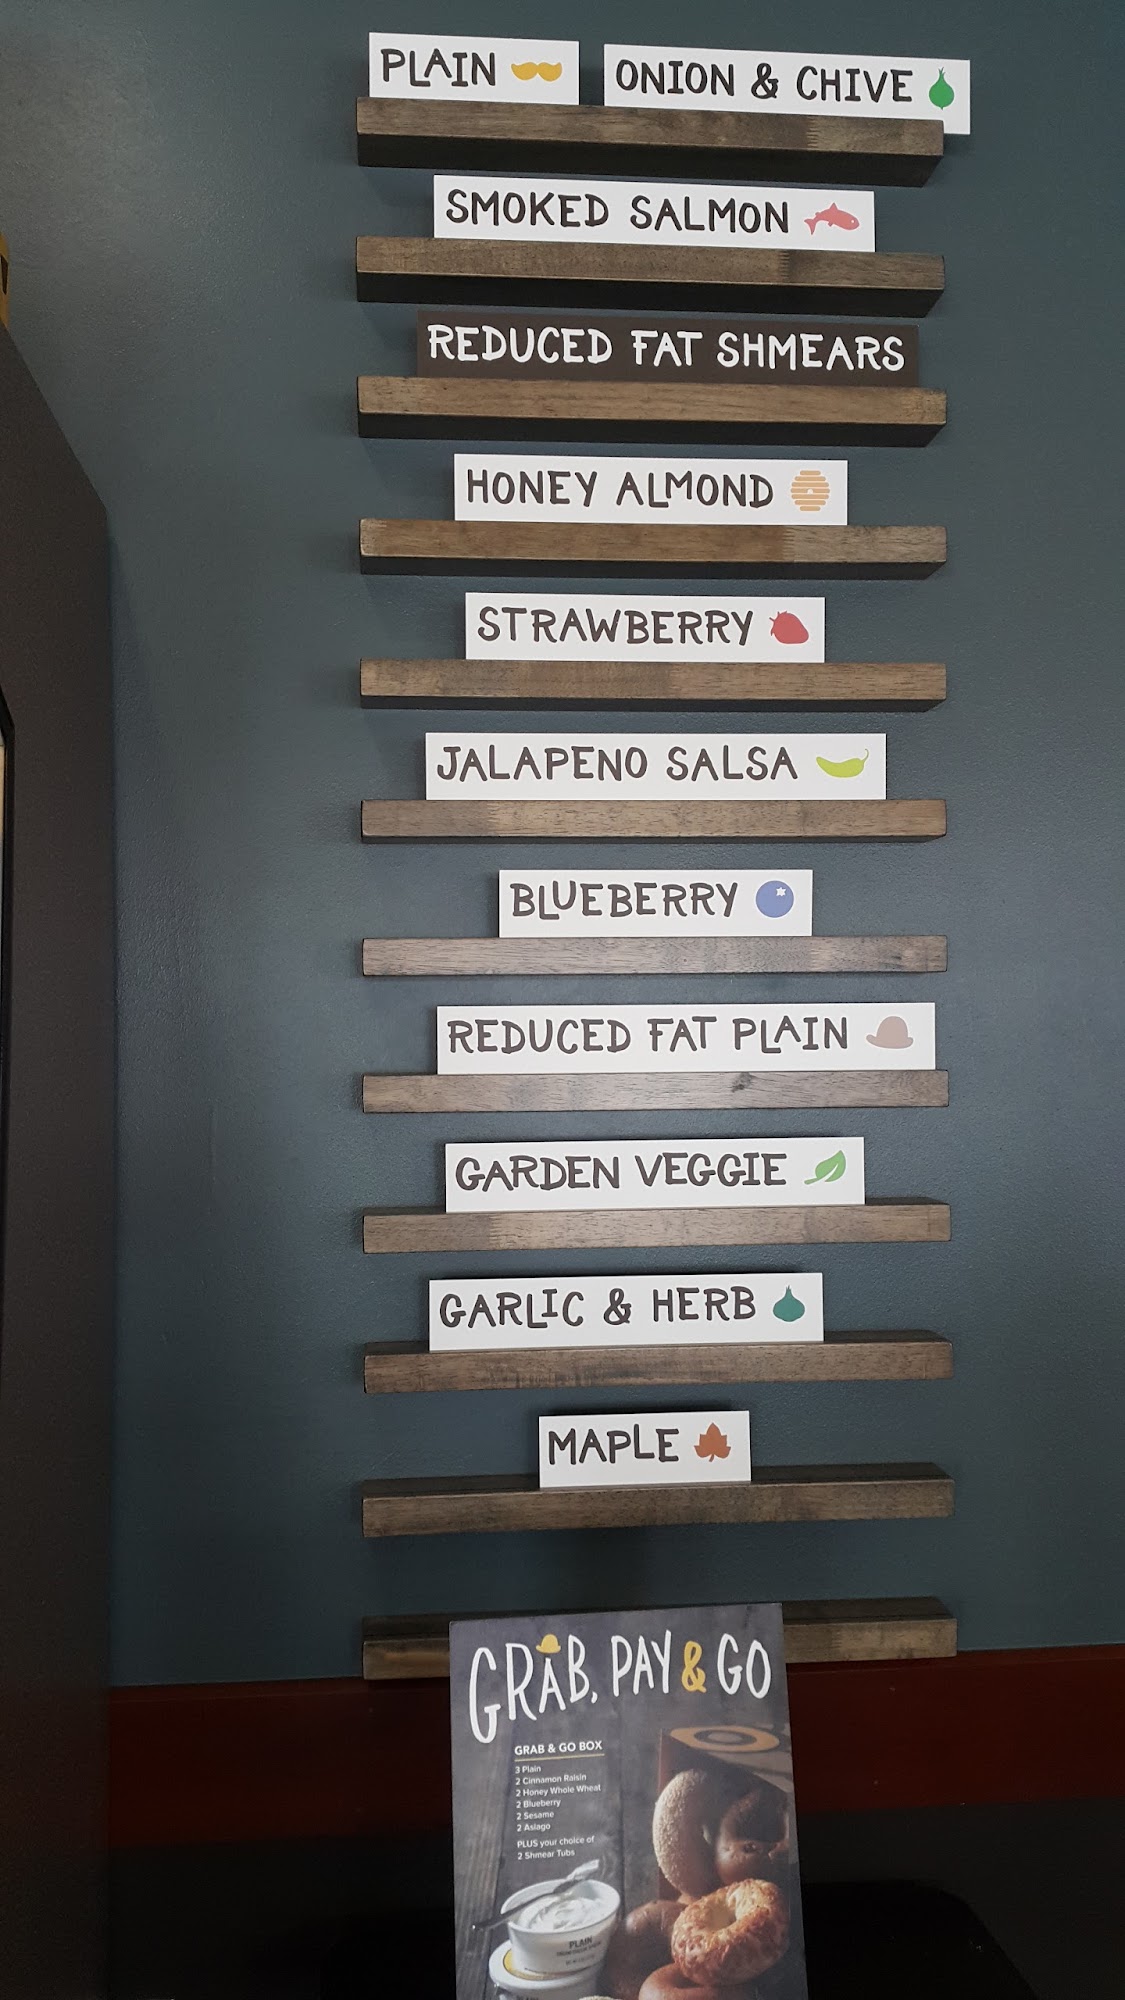 PLAIN
ONION & CHIVE
SMOKED SALMON
REDUCED FAT SHMEARS
HONEY ALMOND
STRAWBERRY
JALAPENO SALSA
BLUEBERRY
REDUCED FAT PLAIN
GARDEN VEGGIE
GARLIC & HERB
MAPLE
GRAB, PAY & GO
GRAB & GO BOX
3 Plain
2 Cinnamon Raisin
2 Honey Whole Wheat
2 Blueberry
2 Sesame
2 Asiago
PLUS your choice of
2 Shmear Tubs
PLAIN